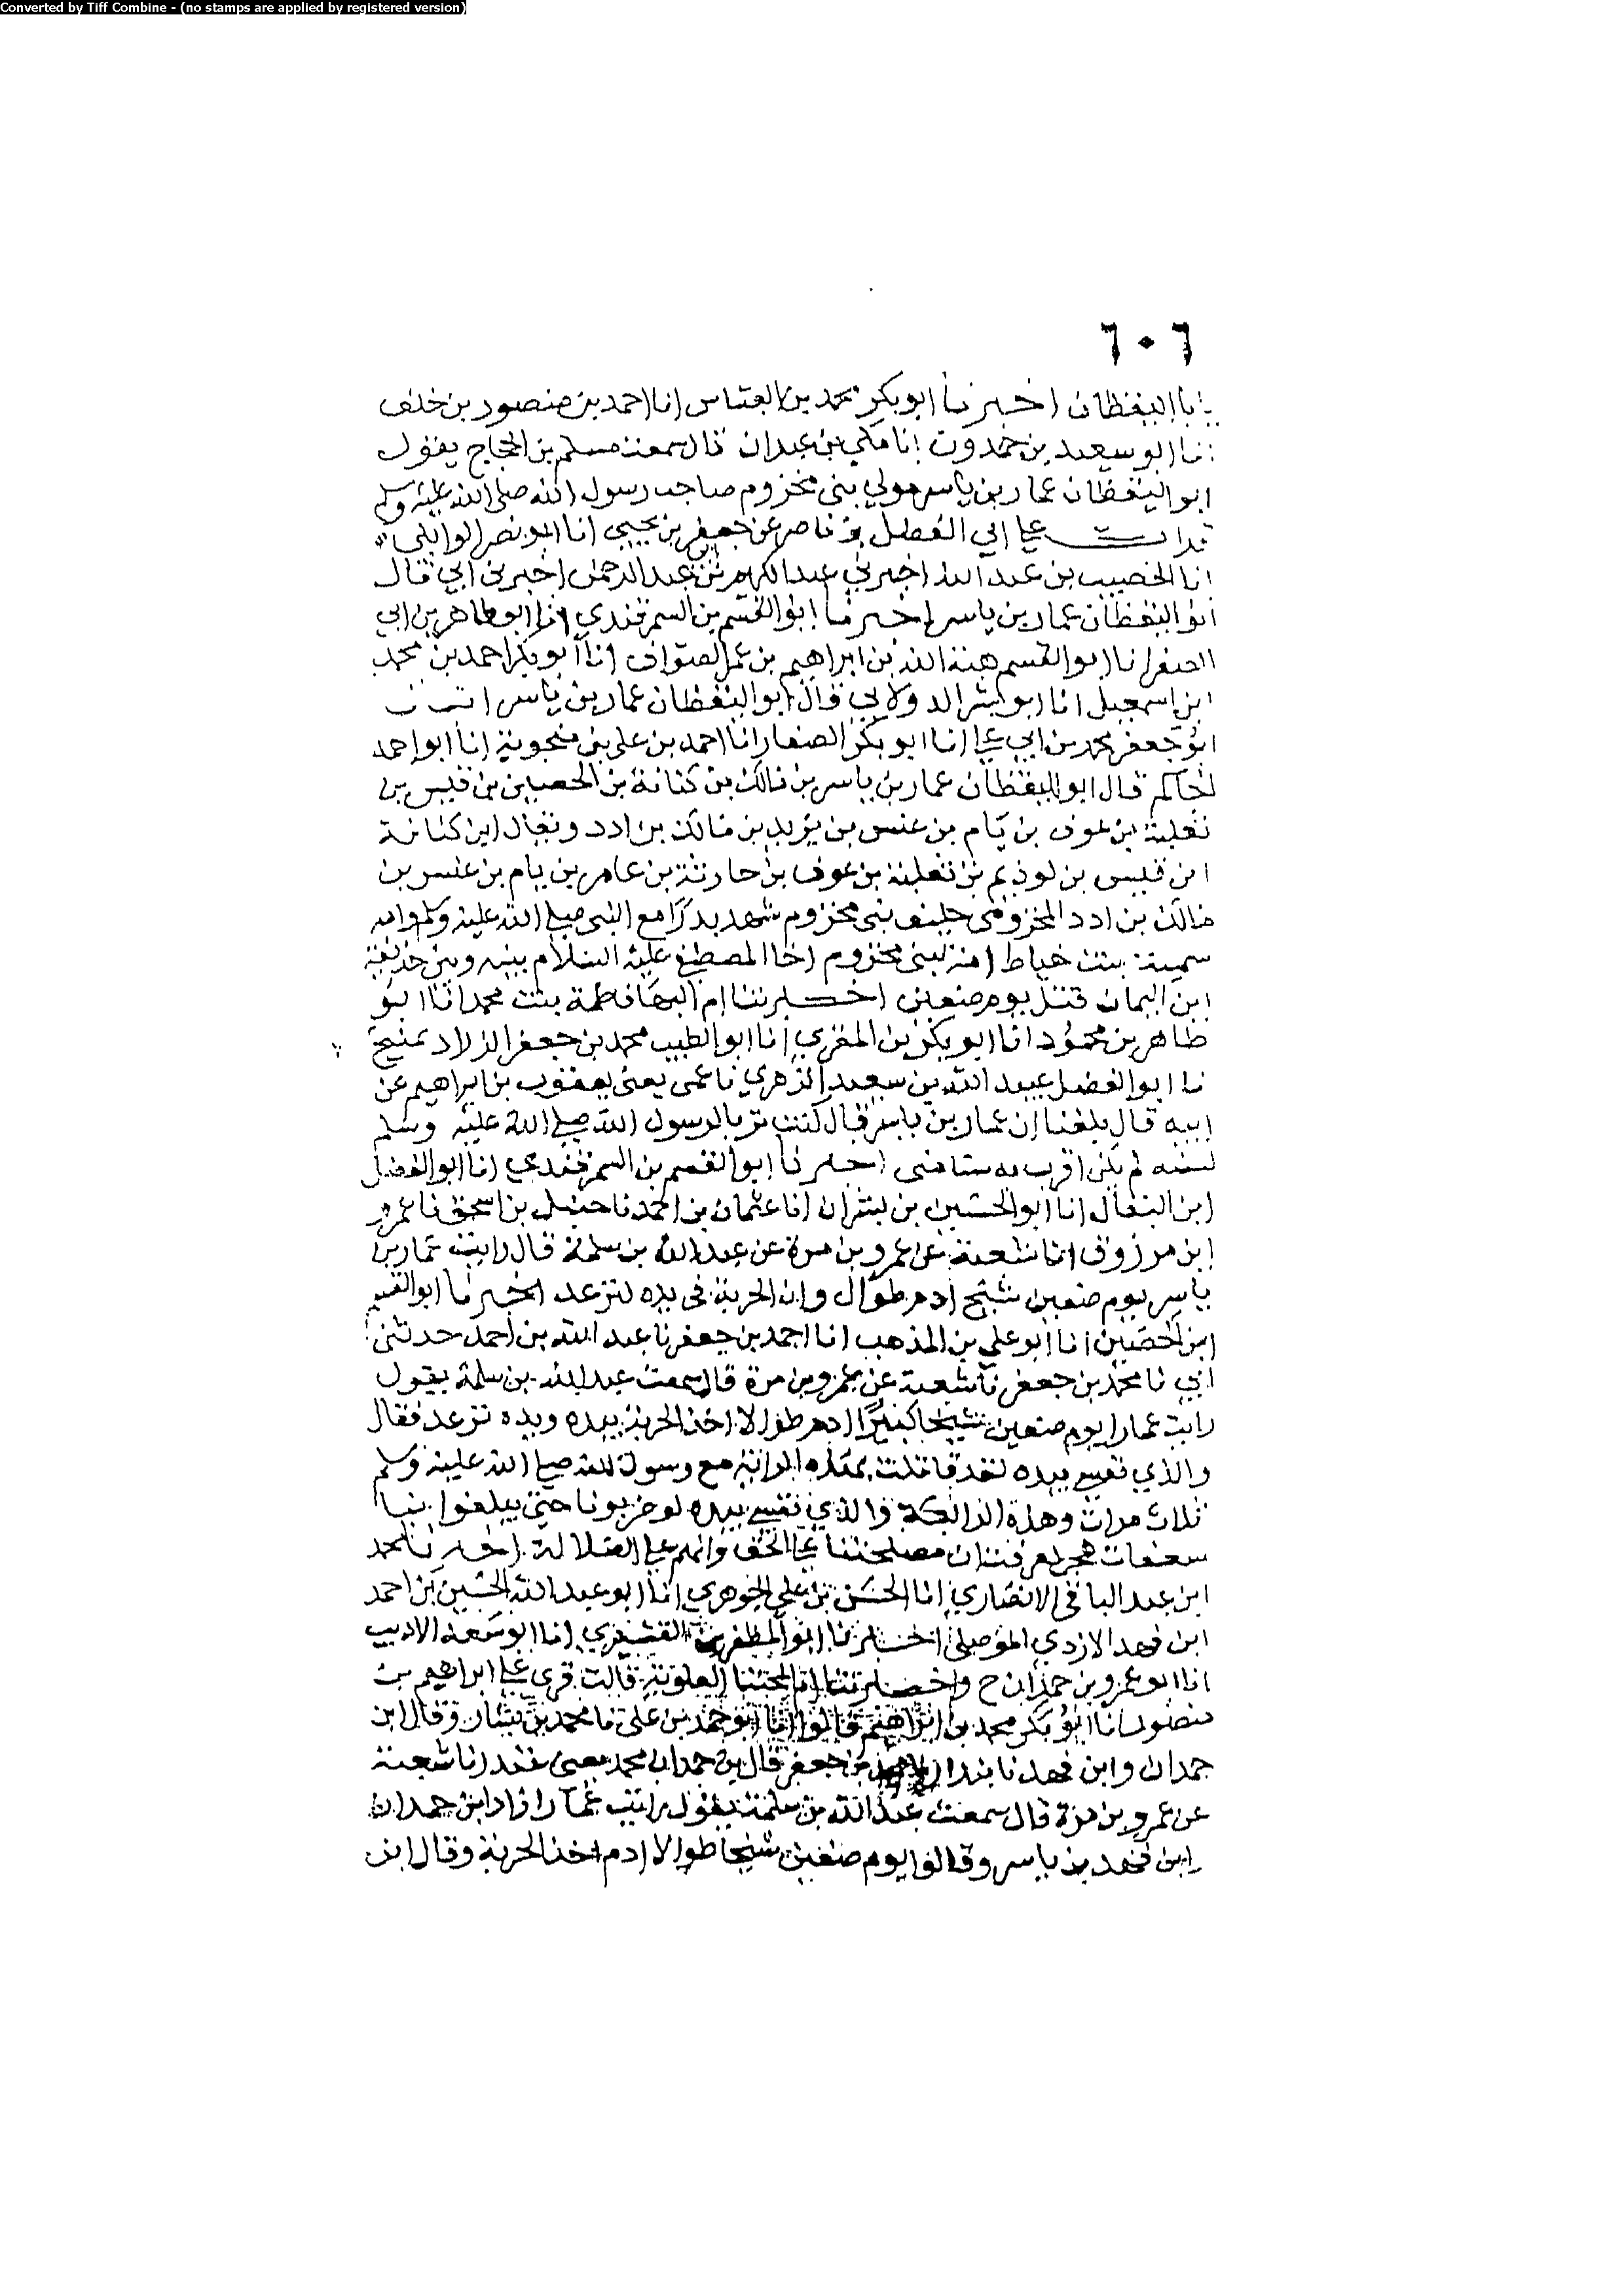 Converted by Tiff Combine - (no stamps are applied by registered version)
٦٠٦
ابا اليقظان اخبرنا ابو بكر محمد بن العباس انا احمد بن منصور بن خلف
انا ابو سعيد بن حمدون انا مكي بن عبدان قال سمعت مسلم بن الحجاج يقول
ابو اليقظان عمار بن ياسر مولي بني مخزوم صاحب رسول الله صلى الله عليه وسلم
قرات علي ابي الفضل بن ناصر عن جعفر بن يحيي انا ابو نصر الوايلي
انا الخصيب بن عبد الله اخبرني عبد الكريم بن عبد الرحمن اخبرني ابي قال
ابو اليقظان عمار بن ياسر اخبرنا ابو القسم بن السمرقندي انا ابو طاهر بن ابي
الصقر انا ابو القسم هبة الله بن ابراهيم بن عمر الصواف انا ابو بكر احمد بن محمد
ابن اسمعيل انا ابو بشر الدولابي قال ابو اليقظان عمار بن ياسر
ابو جعفر محمد بن ابي علي انا ابو بكر الصفار انا احمد بن علي بن منجوية انا ابو احمد
الحاكم قال ابو اليقظان عمار بن ياسر بن مالك بن كنانة بن الحصين بن قيس بن
ثعلبة بن عوف بن يام بن عنس بن يزيد بن مالك بن ادد ويقال ابن كنانة
ابن قيس بن لوذيم بن ثعلبة بن عوف بن حارثة بن عامر بن يام بن عنس بن
مالك بن ادد المخزومي حليف بني مخزوم شهد بدرا مع النبي صلي الله عليه وسلم وامه
سمية بنت خياط امة لبني مخزوم اخا المصطفي عليه السلام بينه وبين حذيفة
ابن اليمان قتل يوم صفين اخبرتنا ام البها فاطمة بنت محمد انا ابو
طاهر بن محمود انا ابو بكر بن المقري انا ابو الطيب محمد بن جعفر الزراد بمنبج
نا ابو الفضل عبيد الله بن سعيد الزهري نا عمي يعني يعقوب بن ابراهيم عن
ابيه قال بلغنا ان عمار بن ياسر قال كنت تربا لرسول الله صلي الله عليه وسلم
لسنه لم يكن اقرب به سنا مني اخبرنا ابو القسم بن السمرقندي انا ابو الفضل
ابن البقال انا ابو الحسين بن بشران انا عثمان بن احمد نا حنبل بن اسحق نا عمرو
ابن مرزوق انا شعبة عن عمرو بن مرة عن عبد الله بن سلمة قال رايت عمار بن
ياسر يوم صفين شيخ ادم طوال وان الحربة في يده لترعد اخبرنا ابو القسم
ابن الحصين انا ابو علي بن المذهب انا احمد بن جعفر نا عبد الله بن احمد حدثني
ابي نا محمد بن جعفر نا شعبة عن عمرو بن مرة قال سمعت عبد الله بن سلمة يقول
رايت عمارا يوم صفين شيخا كبيرا ادم طوالا اخذ الحربة بيده ويده ترعد فقال
والذي نفسي بيده لقد قاتلت بهذه الراية مع رسول الله صلي الله عليه وسلم
ثلاث مرات وهذه الرابعة والذي نفسي بيده لو ضربونا حتى يبلغوا بنا
سعفات هجر لعرفت ان مصلحتنا علي الحق وانهم علي الضلالة اخبرنا محمد
ابن عبد الباقي الانصاري انا الحسن بن علي الجوهري انا ابو عبد الله الحسين بن احمد
ابن فهد الازدي الموصلي اخبرنا ابو المظفر بن القشيري انا ابو سعد الاديب
انا ابو عمرو بن حمدان ح واخبرتنا ام المجتبا العلوية قالت قري علي ابراهيم بن
منصور انا ابو بكر محمد بن ابراهيم قالوا انا ابو احمد بن علي نا محمد بن بشار وقال ابن
حمدان وابن فهد نا بندار بن جعفر قال بن حمدان محمد يعني غندر نا شعبة
عن عمرو بن مرة قال سمعت عبد الله بن سلمة يقول رايت عمارا زاد ابن حمدان
وابن فهد بن ياسر وقالوا يوم صفين شيخا طوالا ادم اخذ الحربة وقال ابن